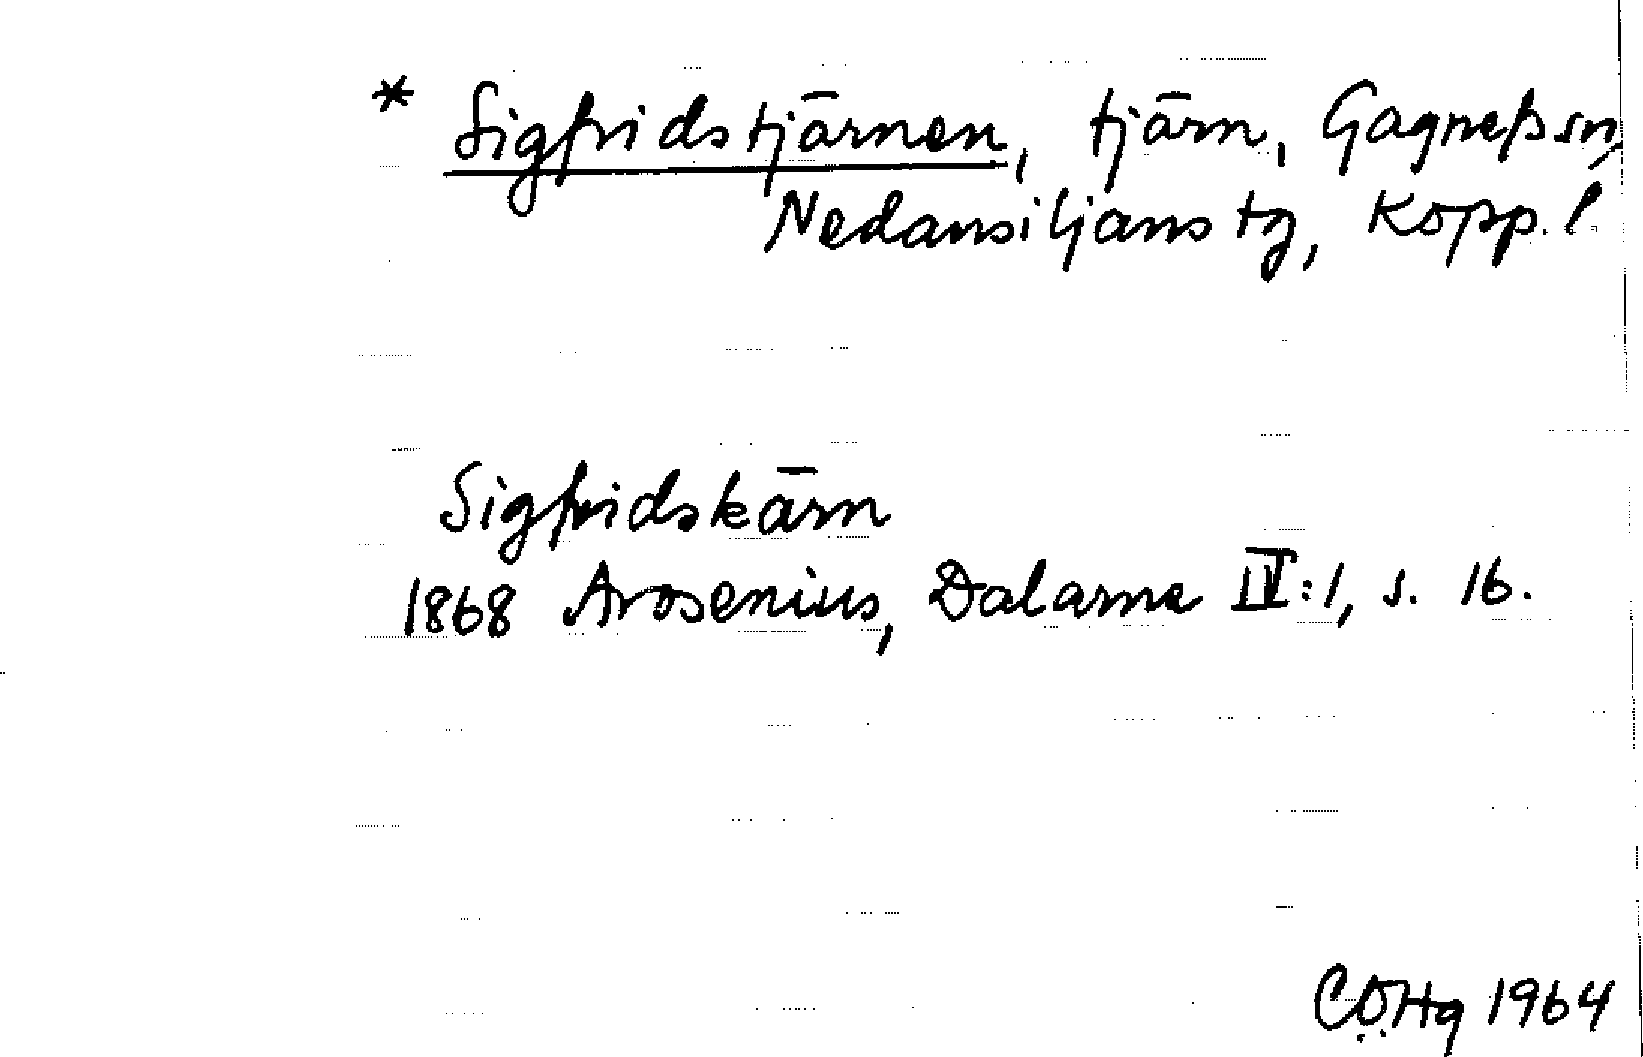 * Sigfridstjärnen, tjärn, Gagnefs sn,
Nedansiljans tg, Kopp. l.
Sigfridskärn
1868 Arosenius, Dalarne IV:1, s. 16.
COHg 1964